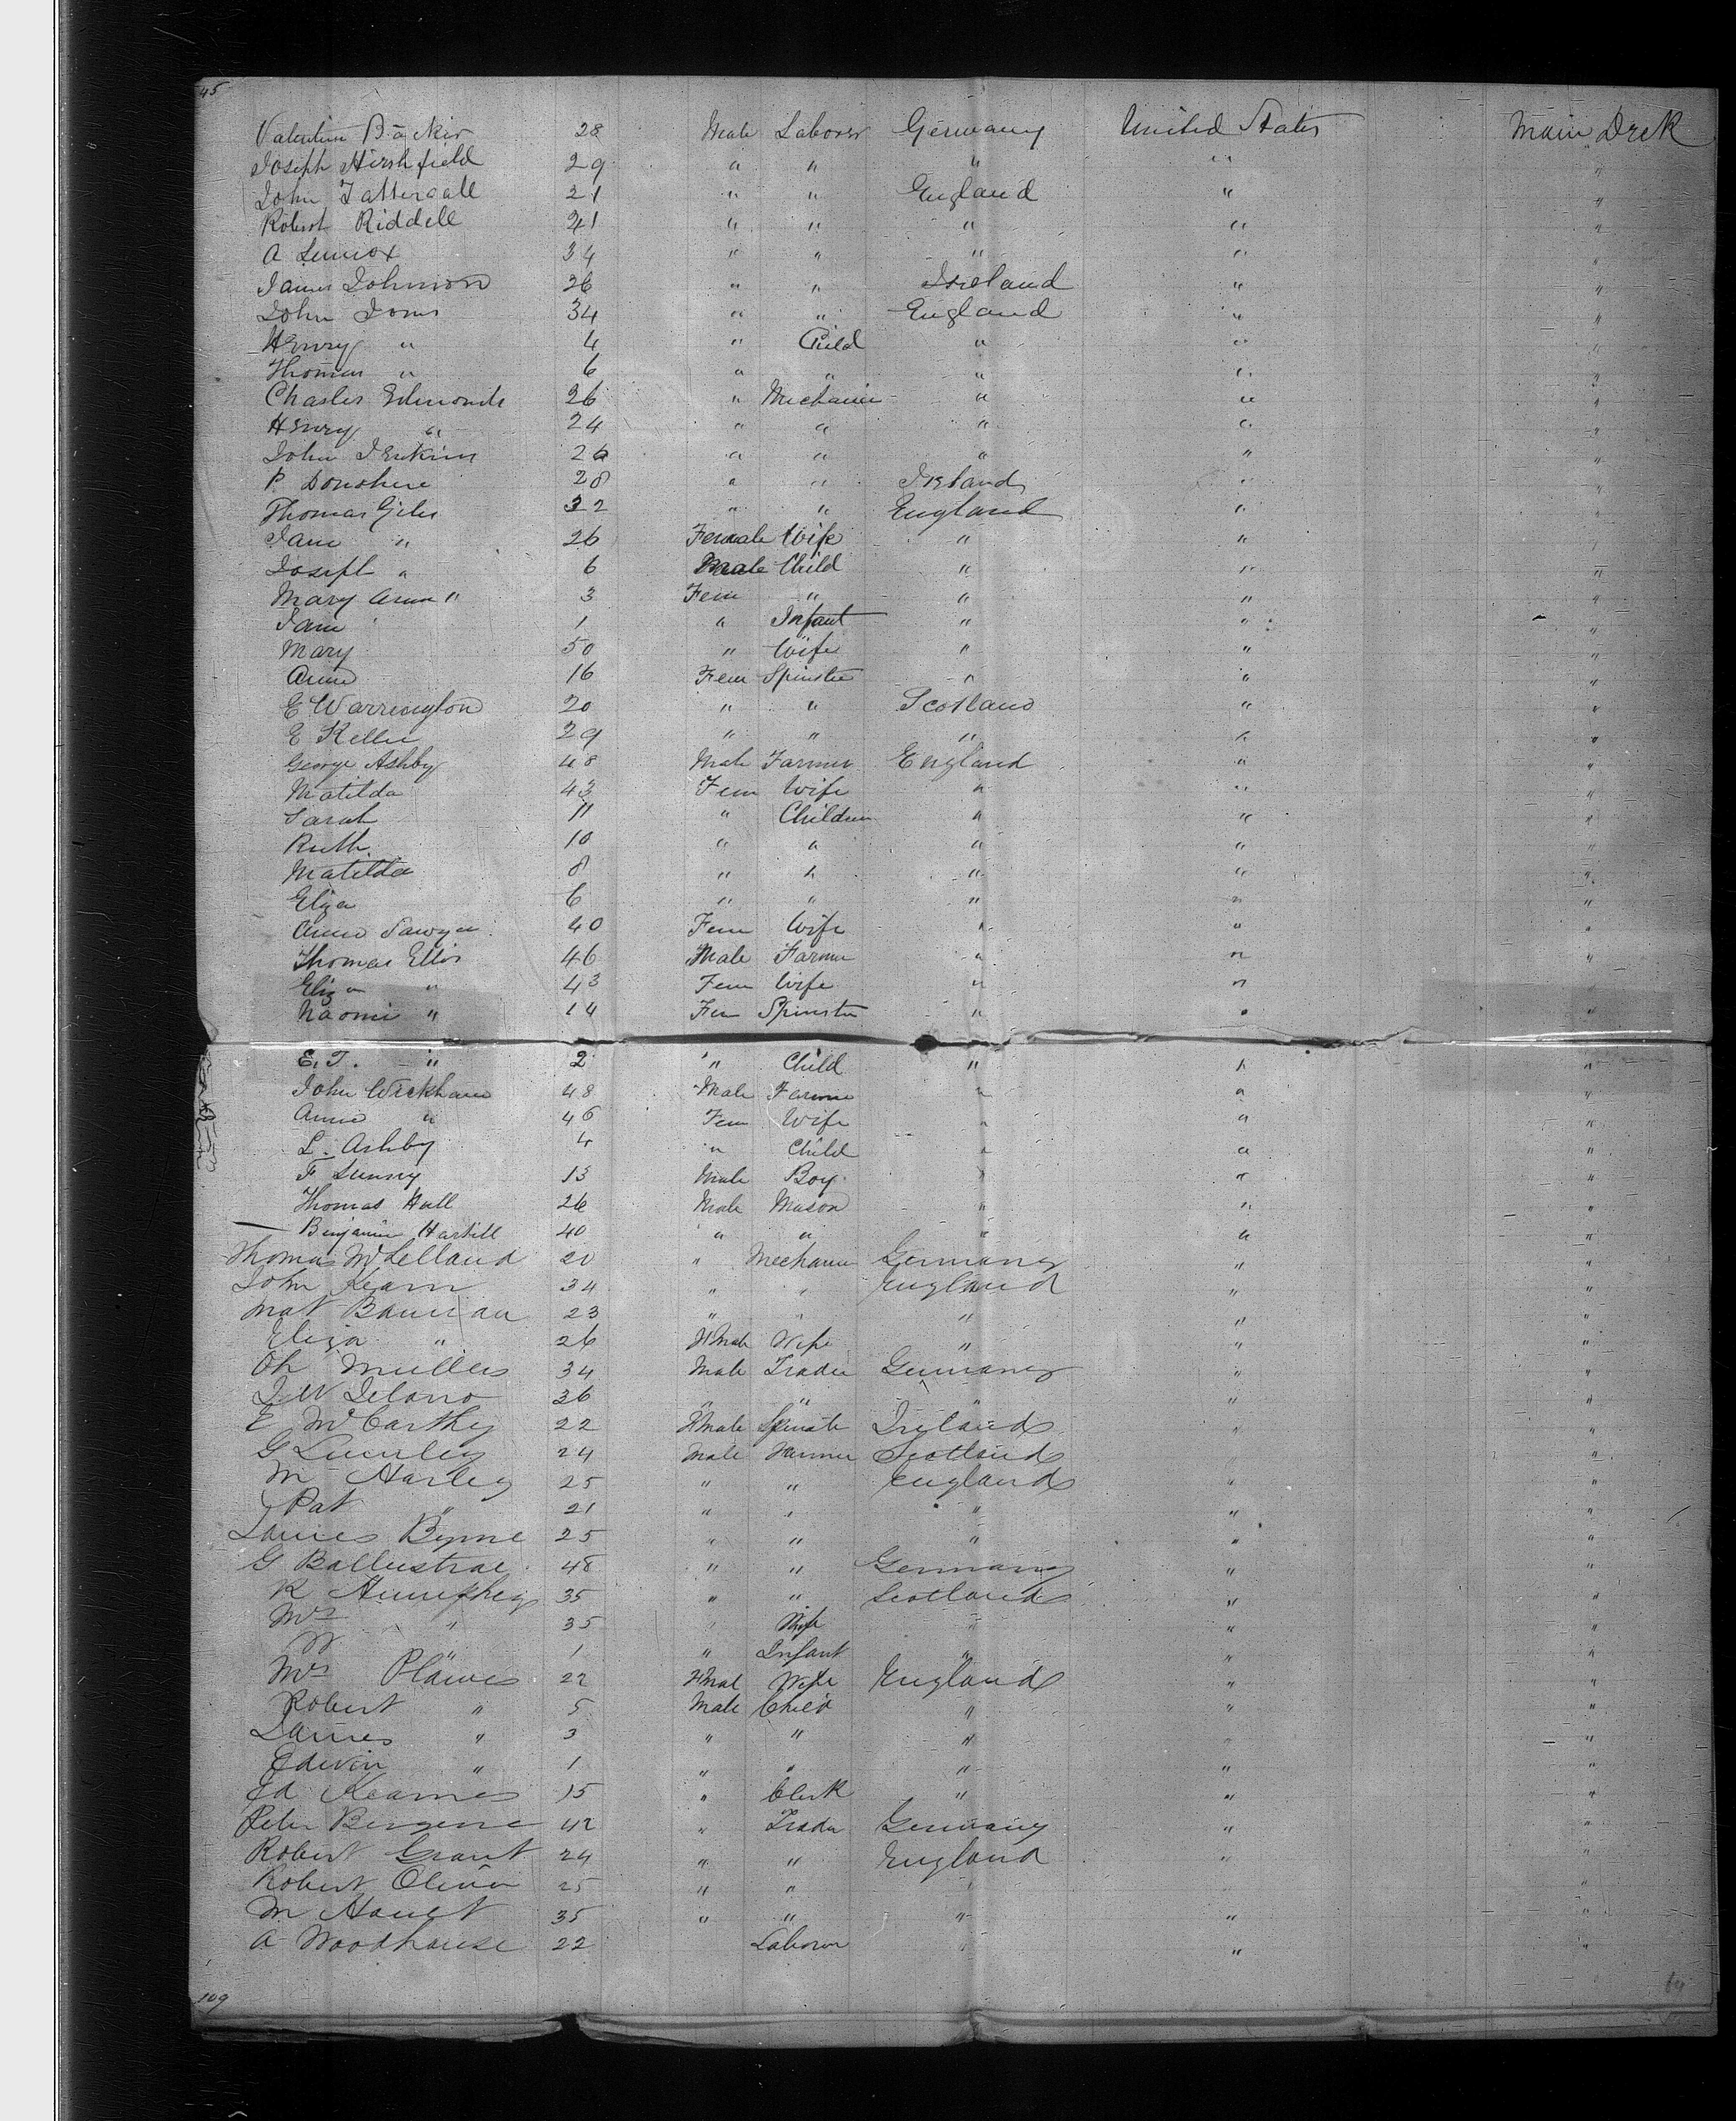 45
Valentin Bäcker 28 Male Laborer Germany United States Main Deck
Joseph Hirshfield 29 " " " " "
John Tattersall 21 " " England " "
Robert Riddell 21 " " " " "
A Lennox 34 " " " " "
James Johnson 26 " " Ireland " "
John Jones 34 " " England " "
Henry " 4 " Child " " "
Thomas " 6 " " " " "
Charles Edmonds 26 " Mechanic " " "
Henry " 24 " " " " "
John Jenkins 26 " " " " "
P. Donohue 28 " " Ireland " "
Thomas Giles 32 " " England " "
Jane " 26 Female Wife " " "
Joseph " 6 Male Child " " "
Mary Anne " 3 Fem " " " "
Jane " 1 " Infant " " "
Mary 50 " Wife " " "
Anne 16 Fem Spinster " " "
E Warrington 20 " " Scotland " "
E Kellie 29 " " " " "
George Ashby 48 Male Farmer England " "
Matilda 43 Fem Wife " " "
Sarah 11 " Children " " "
Ruth 10 " " " " "
Matilda 8 " " " " "
Eliza 6 " " " " "
Anne Sawyer 40 Fem Wife " " "
Thomas Ellis 46 Male Farmer " " "
Eliza " 43 Fem Wife " " "
Naomi " 14 Fem Spinster " " "
E. T. " 2 " Child " " "
John Wickham 48 Male Farmer " " "
Anne " 46 Fem Wife " " "
L. Ashby 4 " Child " " "
F Lunny 13 Male Boy " " "
Thomas Hall 26 Male Mason " " "
Benjamin Hartill 40 " " " " "
Thomas McLelland 20 " Mechanic Germany " "
John Kearn 34 " " England " "
Mat 23 " " " " "
Eliza " 26 Fmale Wife " " "
Ch Mullers 34 Male Trader Germany " "
J W Delano 36 " " " " "
E McCarthy 22 Fmale Ireland " "
G Lumley 24 Male Farmer Scotland " "
M Harley 25 " " England " "
Pat " 21 " " " " "
James Byrne 25 " " " " "
G Ballustrae 48 " " Germany " "
R Humphey 35 " " Scotland " "
Mrs " 35 " Wife " " "
W " 1 " Infant " " "
Mrs 22 Fmal Wife England " "
Robert " 5 Male Child " " "
James " 3 " " " " "
Edwin " 1 " " " " "
Ed Kearnes 15 " Clerk " " "
Peter 42 " Trader Germany " "
Robert Grant 24 " " England " "
Robert Oliver 25 " " " "
M 35 " " " " "
A Woodhouse 22 Laborer " " "
109